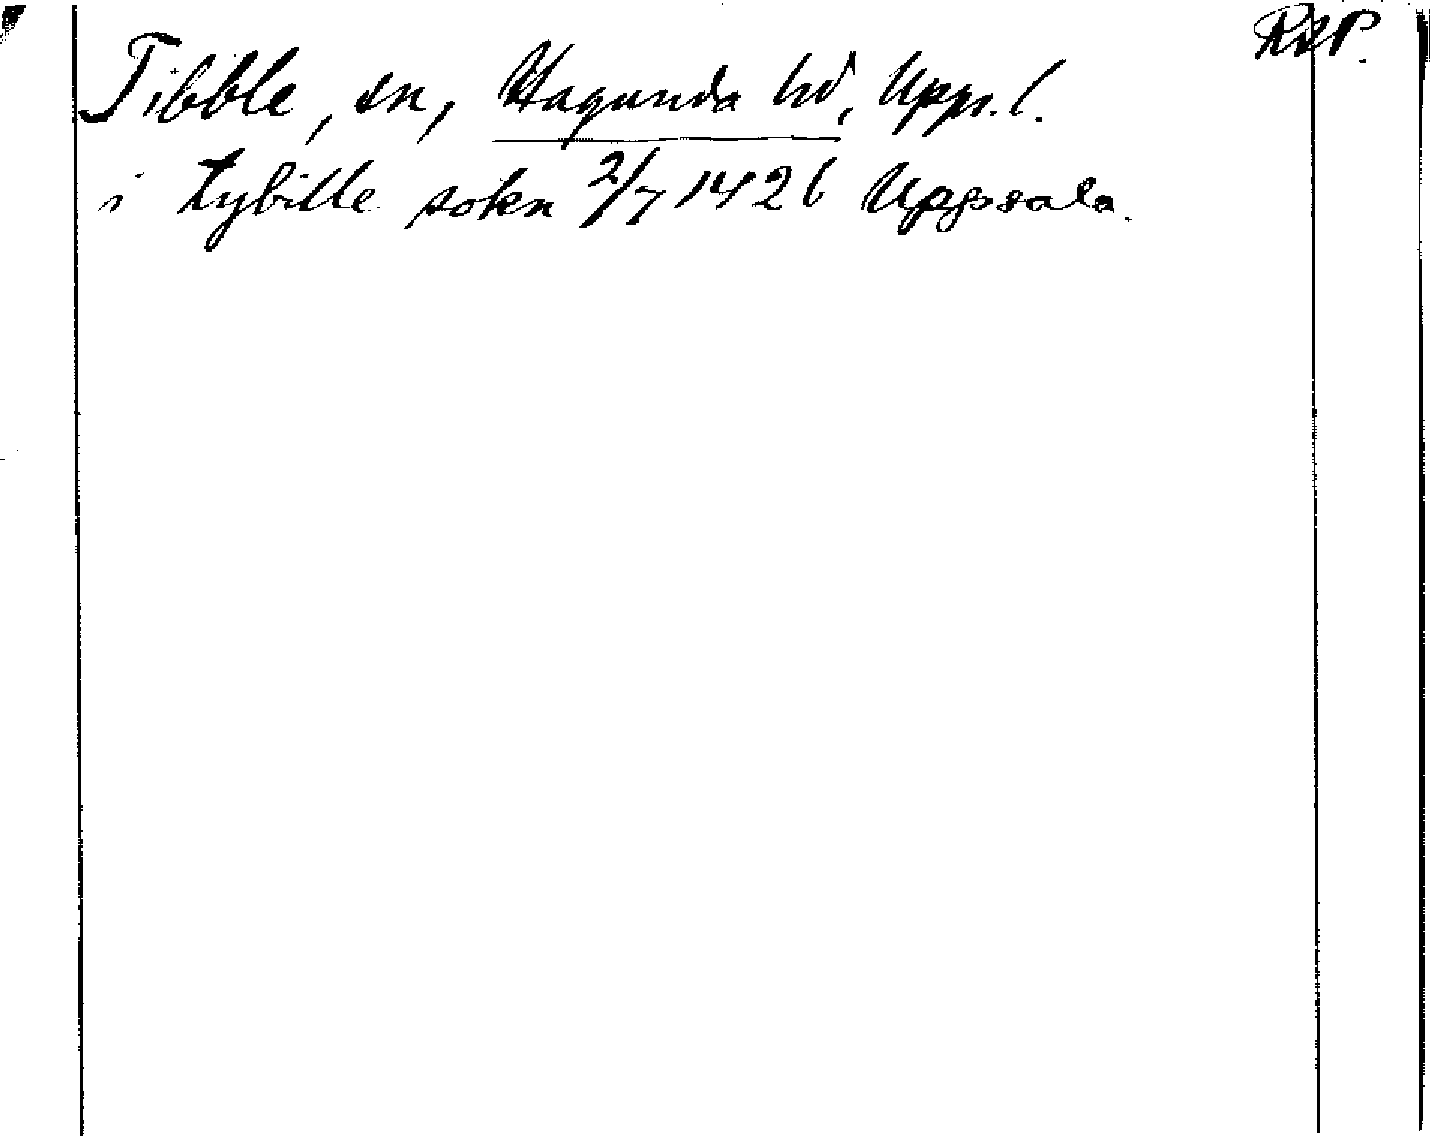 RAP.
Tibble, sn, Hagunda hd, Upps. l.
i tybille sokn 2/7 1426 Uppsala.